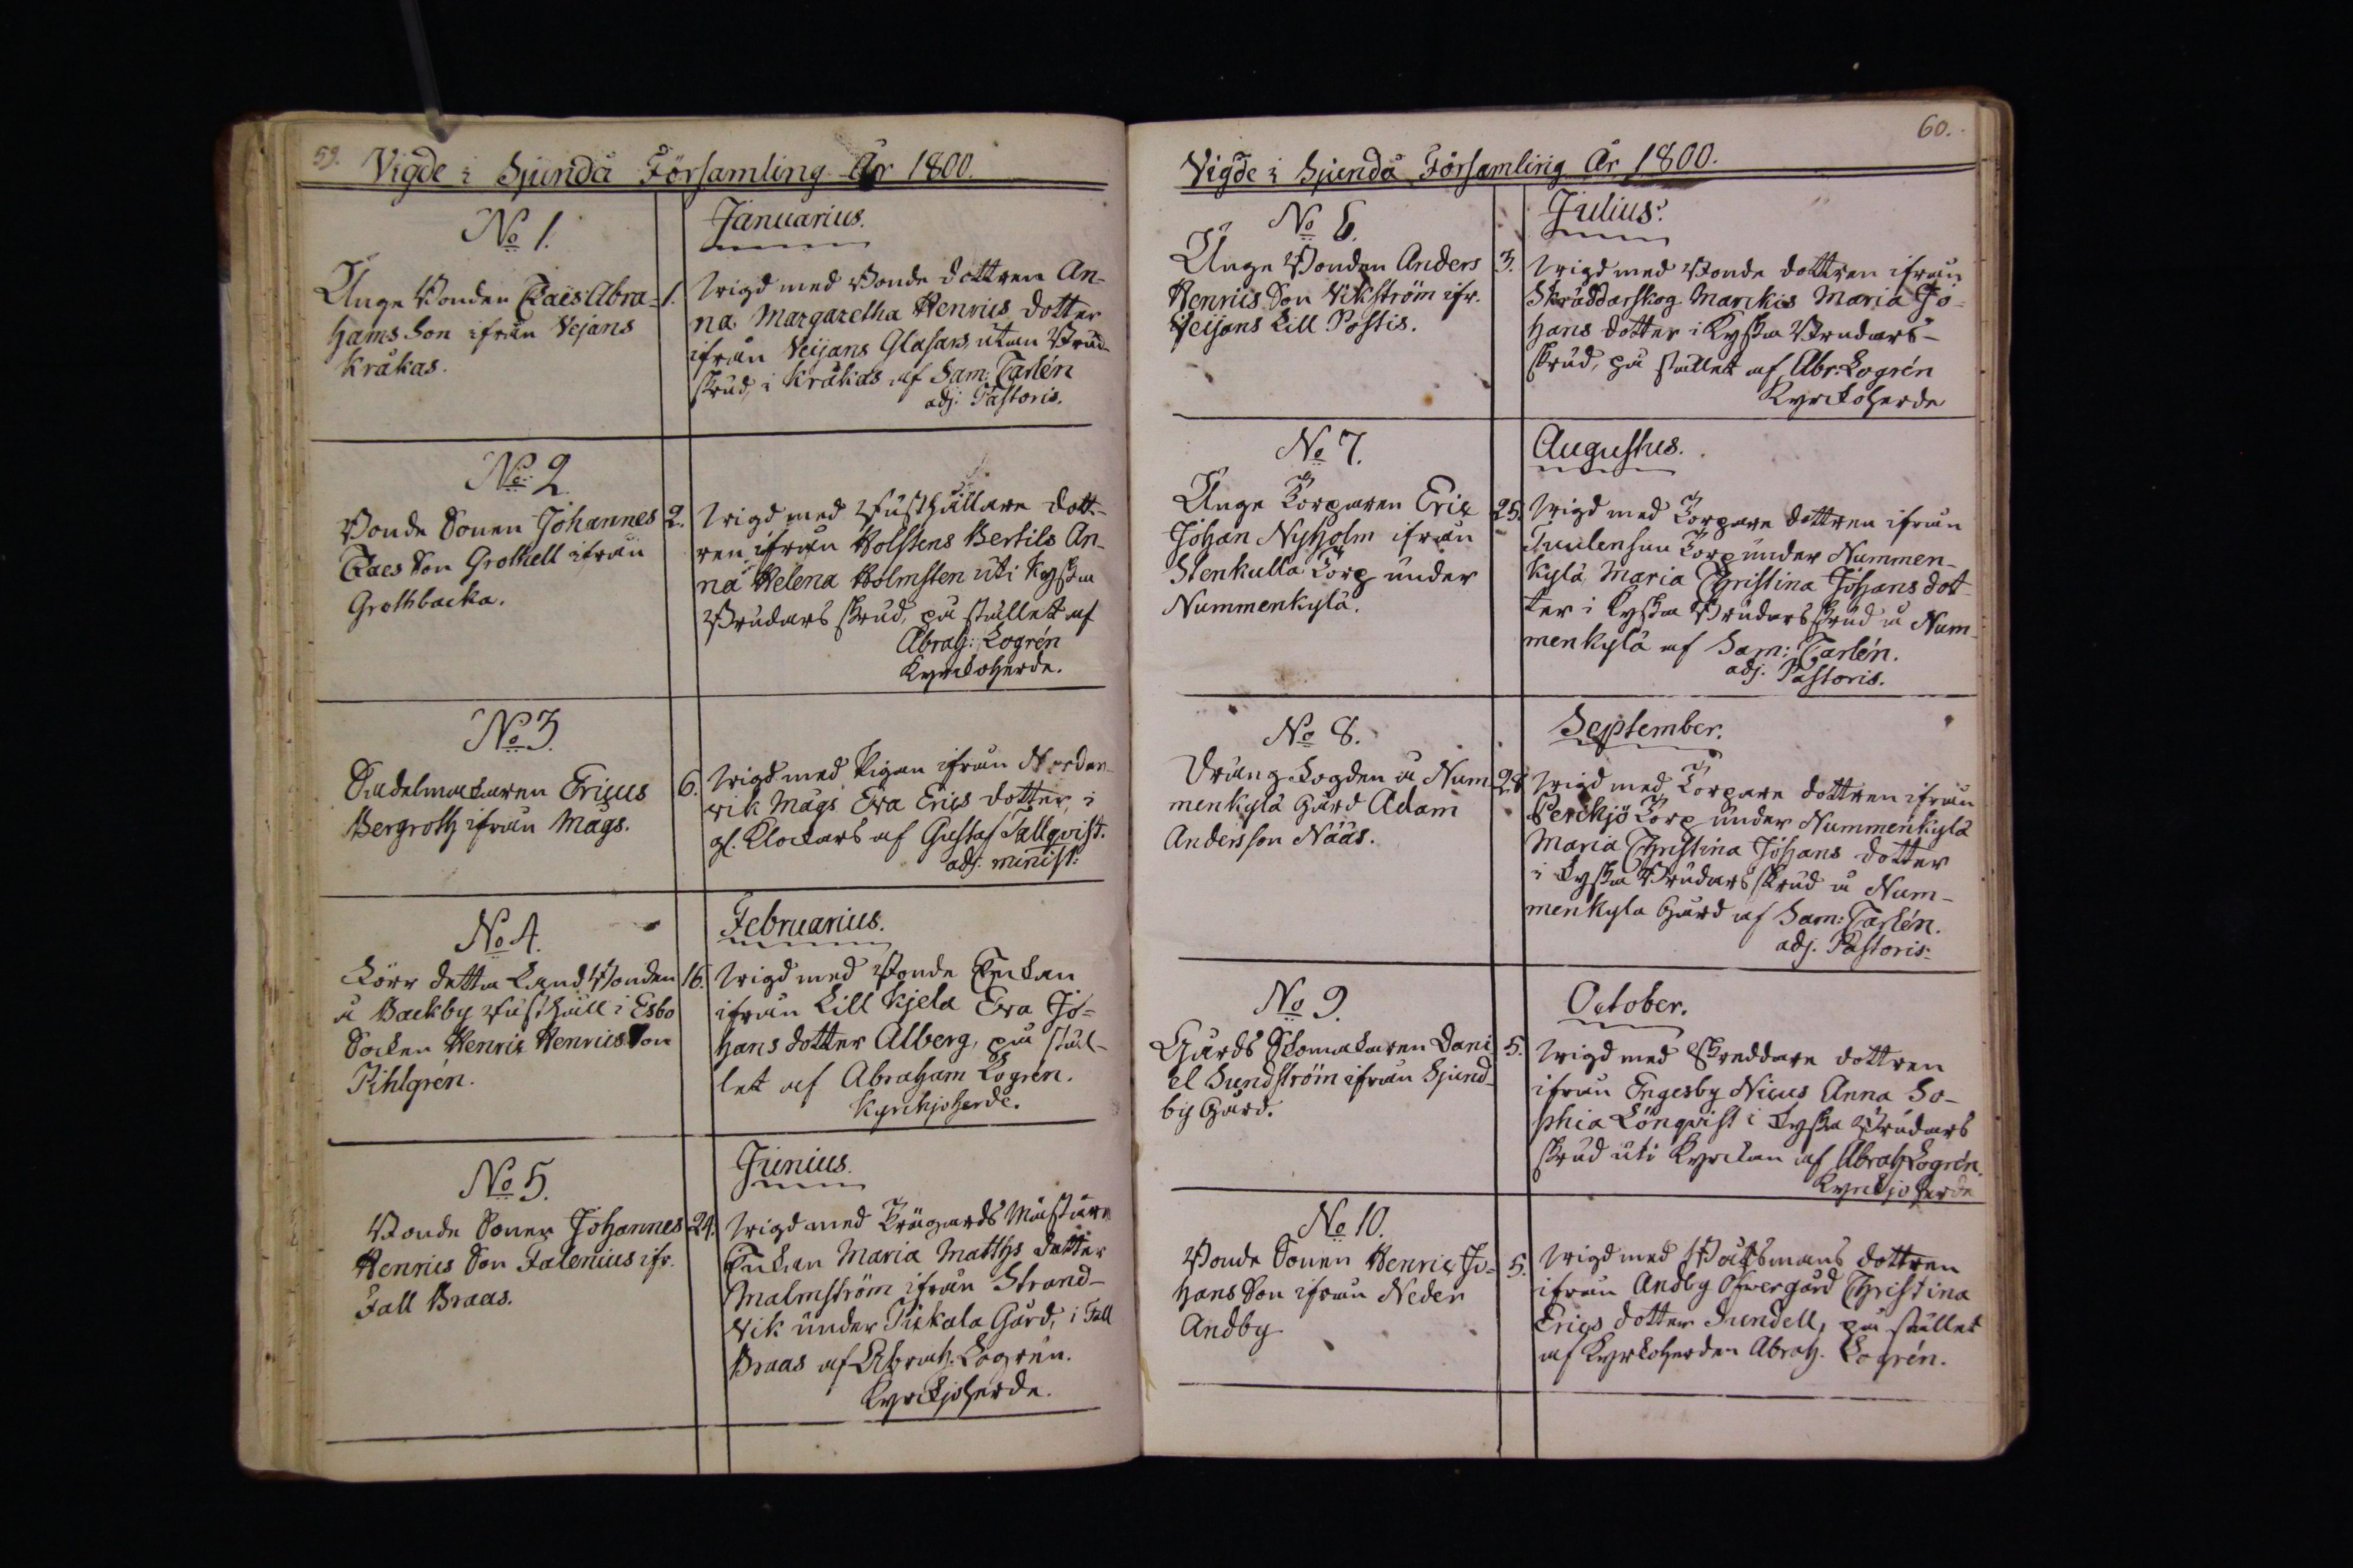 59.
Vigde i Sjundå Församling År 1800.
No 1.
Januarius.
Unge Bonden Claës Abra-
hams Son ifrån Vejans
Kråkas.
1.
Wigd med Bonde dottren An-
na Margaretha Henrics dotter
ifrån Veijans Glasars, utan Brud-
skrud, i Kråkas af Sam: Carlén
adj: Pastoris.
No 2.
Bonde Sonen Johannes
Claes Son Grothell ifrån
Grothbacka.
2.
Wigd med Rusthållare dott-
ren ifrån Holstens Bertils An-
na Helena Holmsten uti Kyska
Brudars skrud, på stället af
Abrah: Logrén
Kyrckoherde.
No 3.
Sadelmakaren Ericus
Bergroth ifrån Mågs.
6.
Wigd med Pigan ifrån Norder-
vik Mågs Eva Erics dotter, i
gl. Klockars af Gustaf Tallqvist.
adj: minist:
No 4.
Februarius.
Förr detta Land Bonden
å Backby Rusthåll i Esbo
Socken Henric Henrics Son
Pihlgrén.
16.
Wigd med Bonde Enckan
ifrån Lill Kjela Eva Jo-
hans dotter Alberg, på stäl-
let af Abraham Logrén.
Kyrckjoherde.
No 5.
Junius.
Bonde Sonen Johannes
Henrics Son Falenius ifr.
Fall Braas.
24.
Wigd med Trägårds Mästare
Enckan Maria Matths dotter
Malmström ifrån Strand-
vik under Pickala Gård, i Fall
Braas af Abrah. Logrén.
Kyrckjoherde.
60.
Vigde i Sjundå Församling År 1800.
No 6.
Julius.
Unge Bonden Anders
Henrics Son Vikström ifr.
Veijans Lill Postis.
3.
Wigd med Bonde dottren ifrån
Skräddarskog Marckis Maria Jo-
hans dotter i Kyska Brudars-
skrud, på stället af Abr: Logrén
Kyrckoherde
No 7.
Augustus.
Unge Torparen Eric
Johan Nyholm ifrån
Stenkulla Torp under
Nummenkylä.
25.
Wigd med Torpare dottren ifrån
Tuulensuu Torp under Nummen-
kylä Maria Christina Johans dot-
ter i Kyska Brudars skrud å Num-
menkylä af Sam: Carlén.
adj. Pastoris.
No 8.
September.
Dräng Fogden å Num
menkylä Gård Adam
Andersson Nääs.
28.
Wigd med Torpare dottren ifrån
Perckjö Torp under Nummenkylä
Maria Christina Johans dotter
i Kyska Brudars skrud å Num-
menkyla Gård af Sam: Carlén.
adj. Pastoris.
No 9.
October.
Gårds Skomakaren Dani
el Sundström ifrån Sjund-
by Gård.
5.
Wigd med Skreddare dottren
ifrån Engesby Nicus Anna So-
phia Lönqvist i Kyska Brudars
skrud uti Kyrckan af Abrah Logrén.
Kyrckjoherde
No 10.
Bonde Sonen Henric Jo-
hans Son ifrån Neder
Andby
5.
Wigd med Båtsmans dottren
ifrån Andby Öfwergård Christina
Erics dotter Sundell, på stället
af Kyrkoherden Abrah. Logrén.